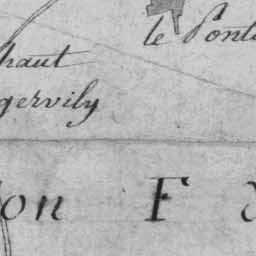 le Pont
haut
gervily
on F